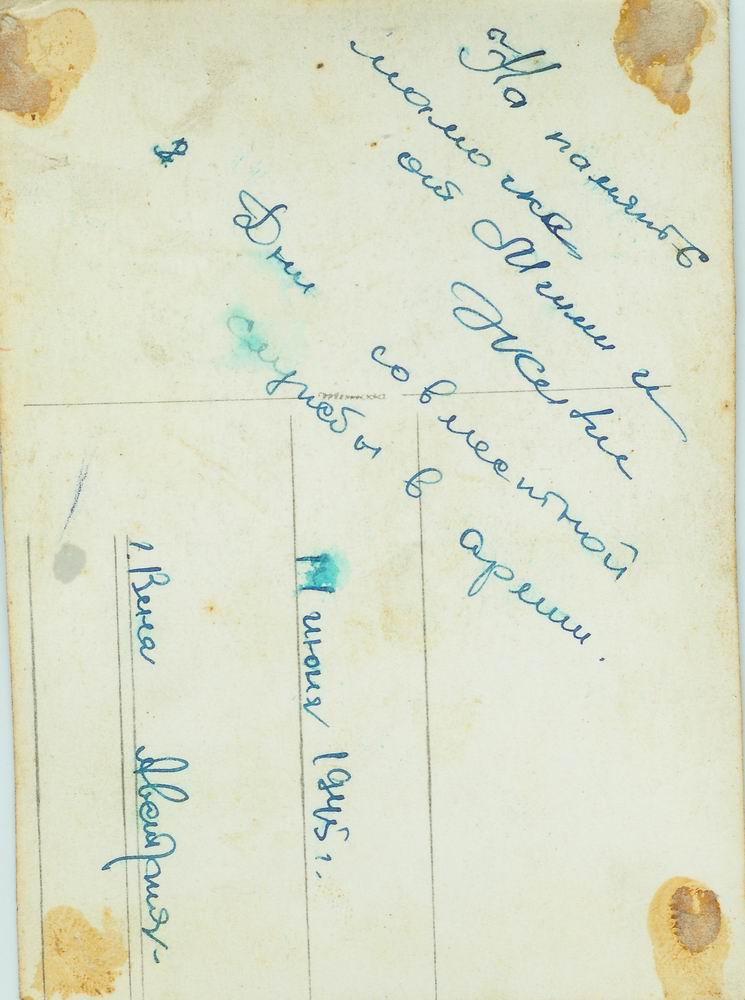 На память
мамочке
от Миши и
Жени
Дни совместной
службы в армии.
июня 1945 г.
г. Вена Австрия